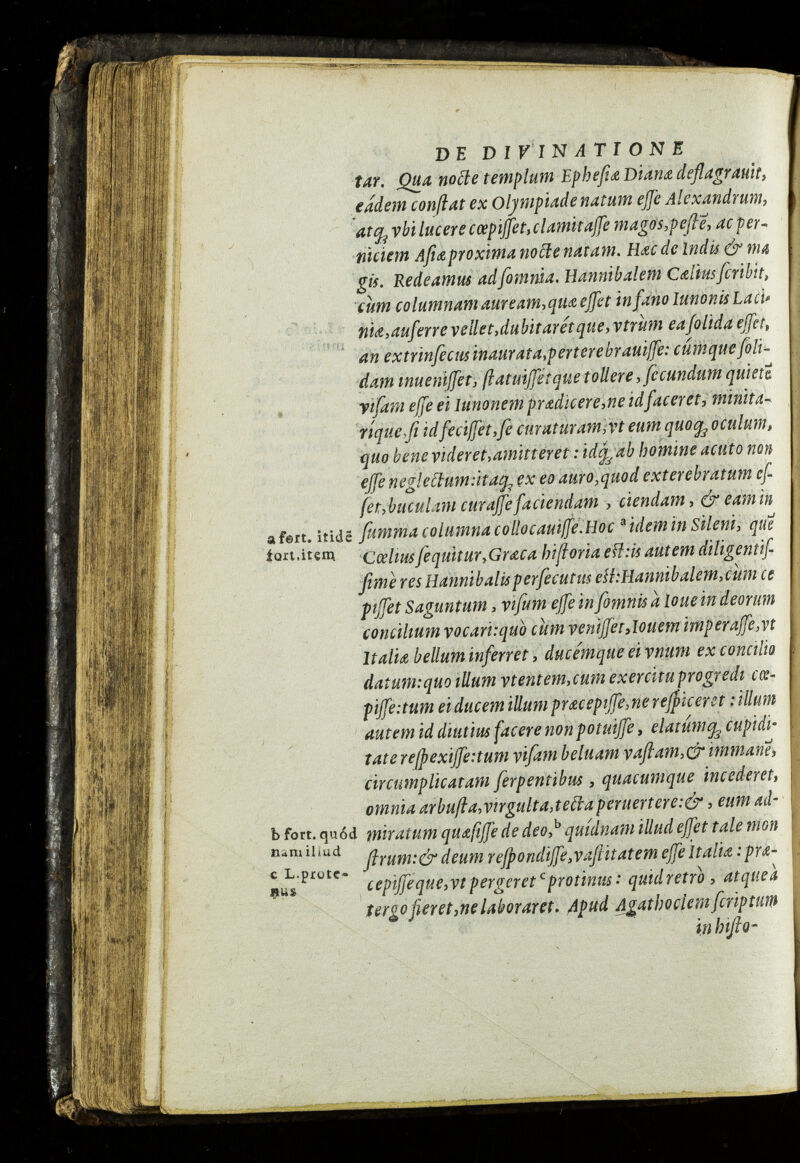 DE DIVINATIONE
tar. Qua nocte templum Ephesiæ Dianæ deflagrauit,
eâdem constat ex Olympiade natum esse Alexandrum,
atq; vbi lucere cœpisset, clamitasse magos, pestẽ, ac per-
niciem Asiæ proxima nocte natam. Hæc de Indis & ma
gis. Redeamus ad somnia. Hannibalem Cælius scribit,
cùm columnam auream, quæ esset in fano Iunonis Laci-
niæ, auferre vellet, dubitarétque, vtrùm ea solida esset,
an extrinsecus inaurata, perterebrauisse: cúmque soli-
dam inuenisset, statuissétque tollere, secundum quietẽ
visam esse ei Iunonem prædicere, ne id faceret, minita-
ríque, si id fecisset, se curaturam, vt eum quoq; oculum,
quo bene videret, amitteret: idq; ab homine acuto non
esse neglectum: itaq; ex eo auro, quod exterebratum es-
set, buculam curasse faciendam, ciendam, & eam in
a fort. itidẽ summa columna collocauisse. Hoc ᵃ idem in Sileni, quẽ
fort. item Cœlius sequitur, Græca historia est: is autem diligentis-
simè res Hannibalis persecutus est: Hannibalem, cùm ce
pisset Saguntum, visum esse in somnis à Ioue in deorum
concilium vocari: quò cùm venisset, Iouem imperasse, vt
Italiæ bellum inferret, ducémque ei vnum ex concilio
datum: quo illum vtentem, cum exercitu progredi cœ-
pisse: tum ei ducem illum præcepisse, ne respiceret: illum
autem id diutius facere non potuisse, elatúmq; cupidi-
tate respexisse: tum visam beluam vastam, & immanẽ,
circumplicatam serpentibus, quacumque incederet,
omnia arbusta, virgulta, tecta peruertere: &, eum ad-
b fort. quód miratum quæsisse de deo, ᵇ quídnam illud esset tale mon
nam illud strum: & deum respondisse, vastitatem esse Italiæ: præ-
c L. prote- cepisseque, vt pergeret ᶜ protinus: quid retrò, atque à
nus tergo fieret, ne laboraret. Apud Agathoclem scriptum
in histo-